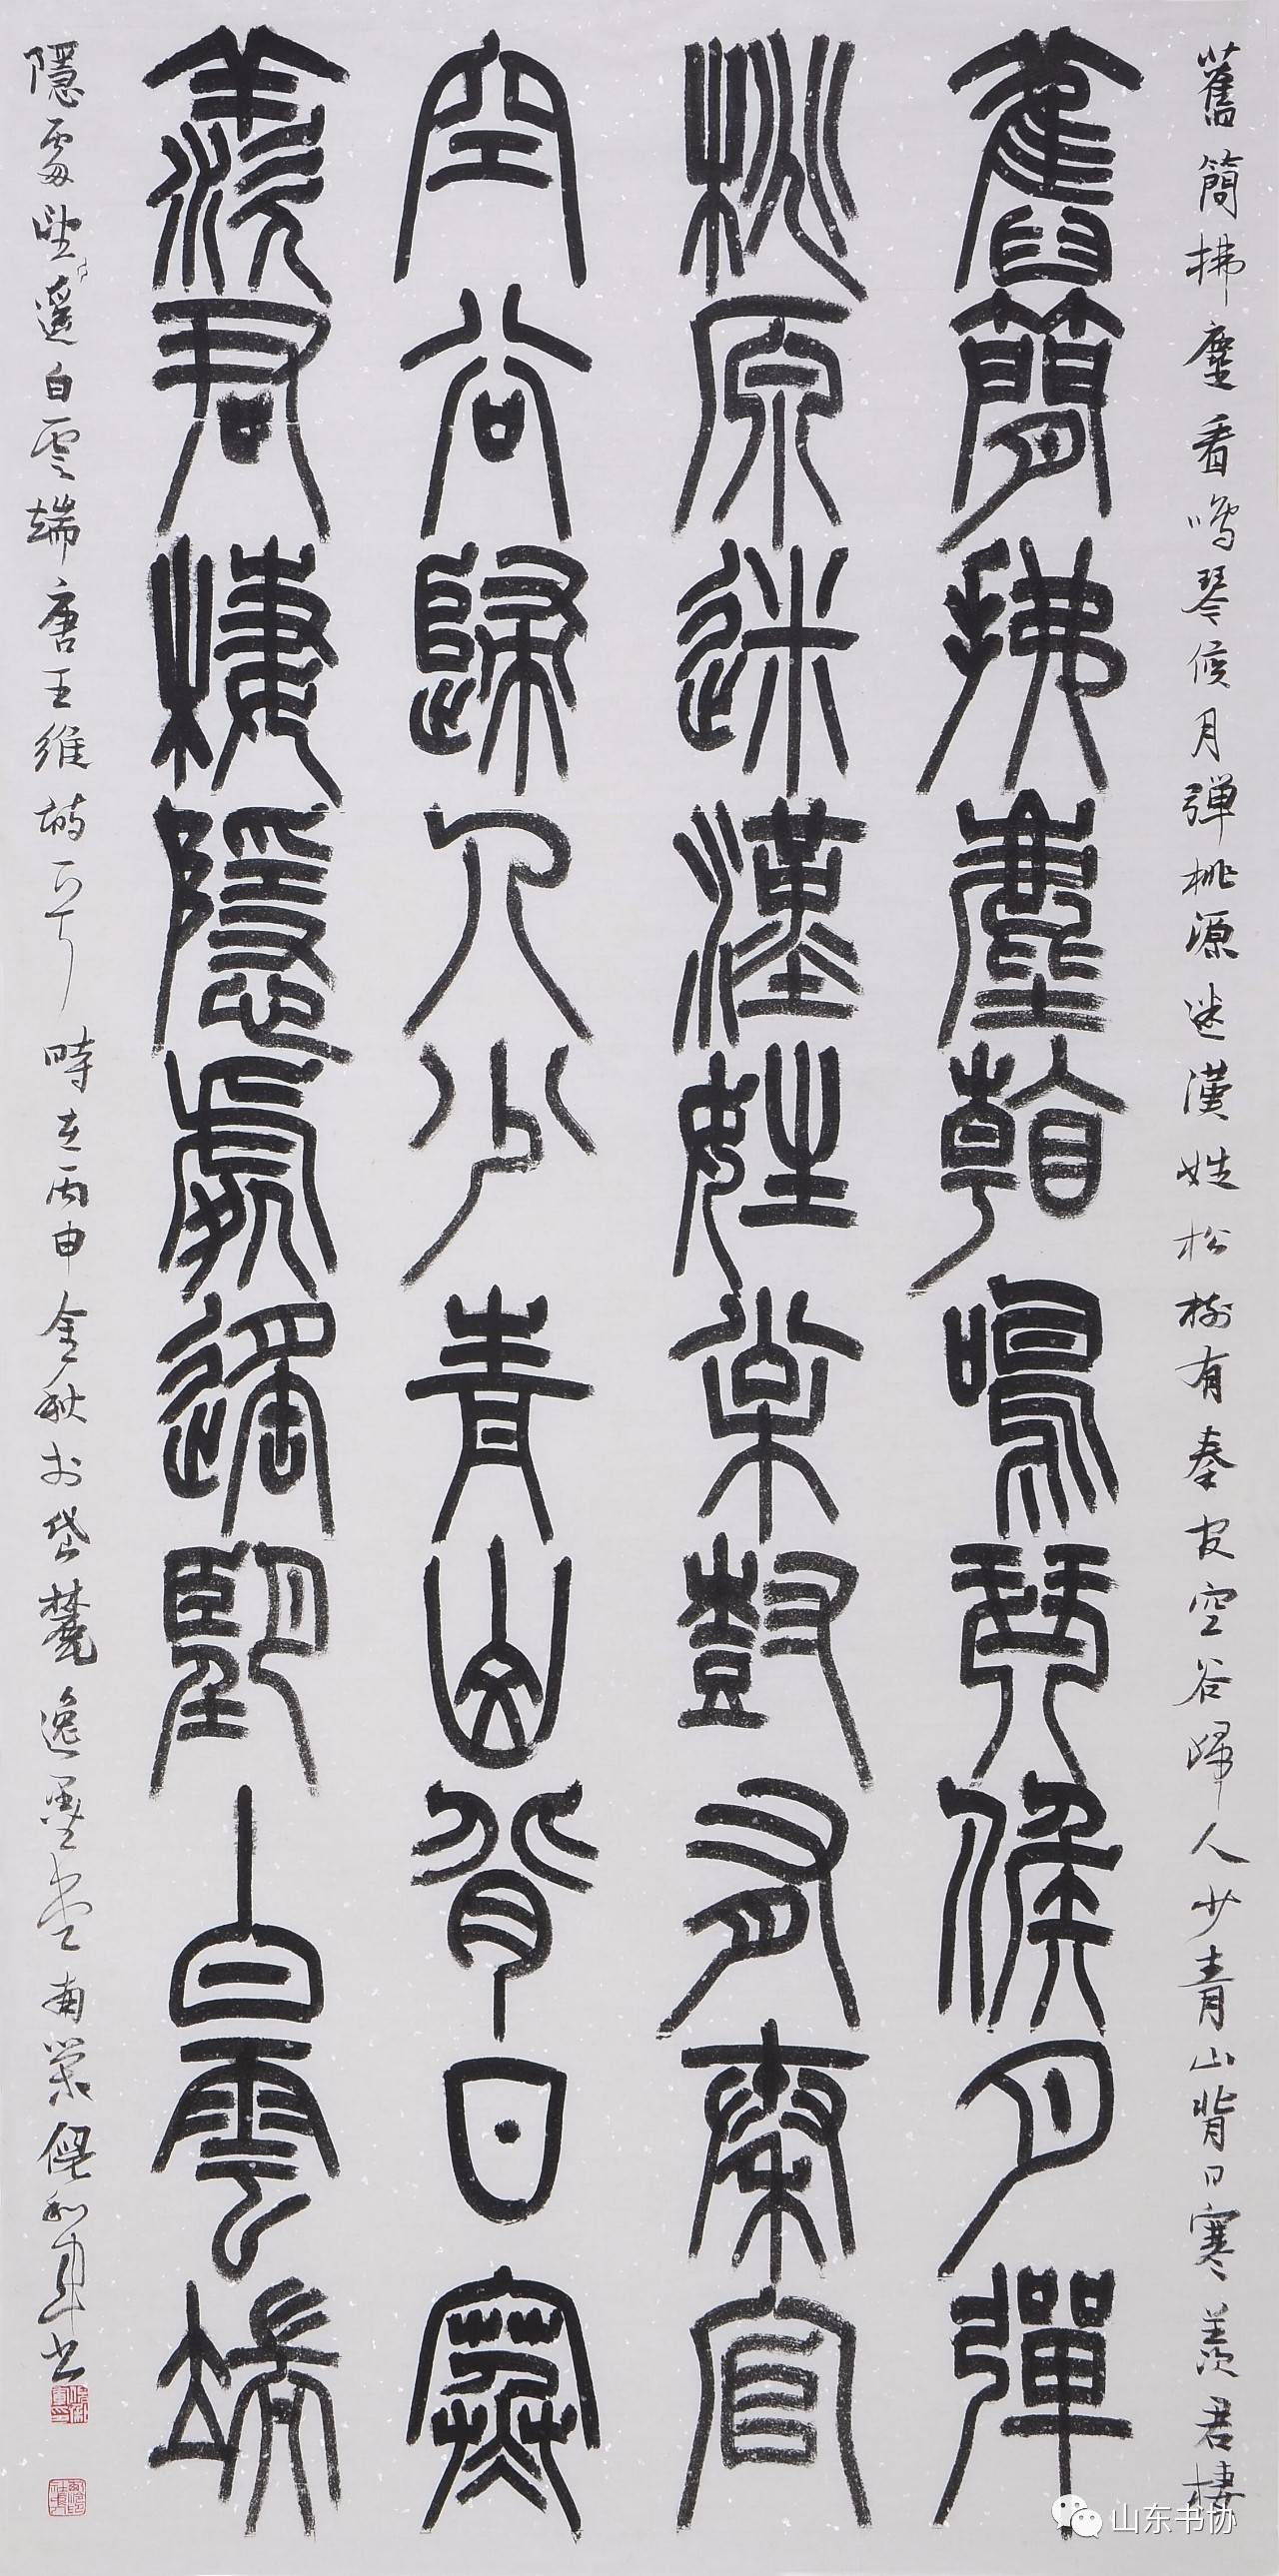 舊簡拂塵看鳴琴候月彈桃源迷漢姓松樹有秦官空谷歸人少青山背日寒羨君棲
舊簡拂塵看鳴琴候月彈
桃原迷漢姓松樹有秦官
空谷歸人少青山背日寒
羨君棲隱處遥望白雲端
隱處望遙白雲端唐王維詩 時在丙申金秋於岱麓逸墨堂南窗倪和軍書
山东书协